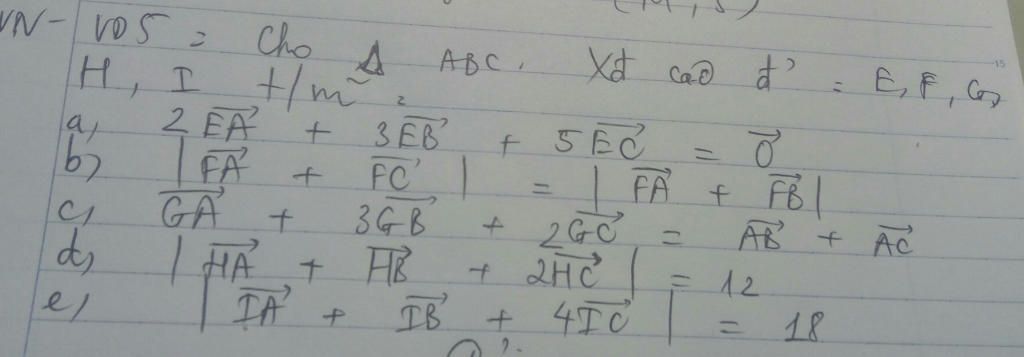 VN- VD5 : Cho Δ ABC. Xđ các đ' : E, F, G,
H, I t/m :
a, 2EA⃗ + 3EB⃗ + 5EC⃗ = 0⃗
b) |FA⃗ + FC⃗| = |FA⃗ + FB⃗|
c, GA⃗ + 3GB⃗ + 2GC⃗ = AB⃗ + AC⃗
d, |HA⃗ + HB⃗ + 2HC⃗| = 12
e) |IA⃗ + IB⃗ + 4IC⃗| = 18